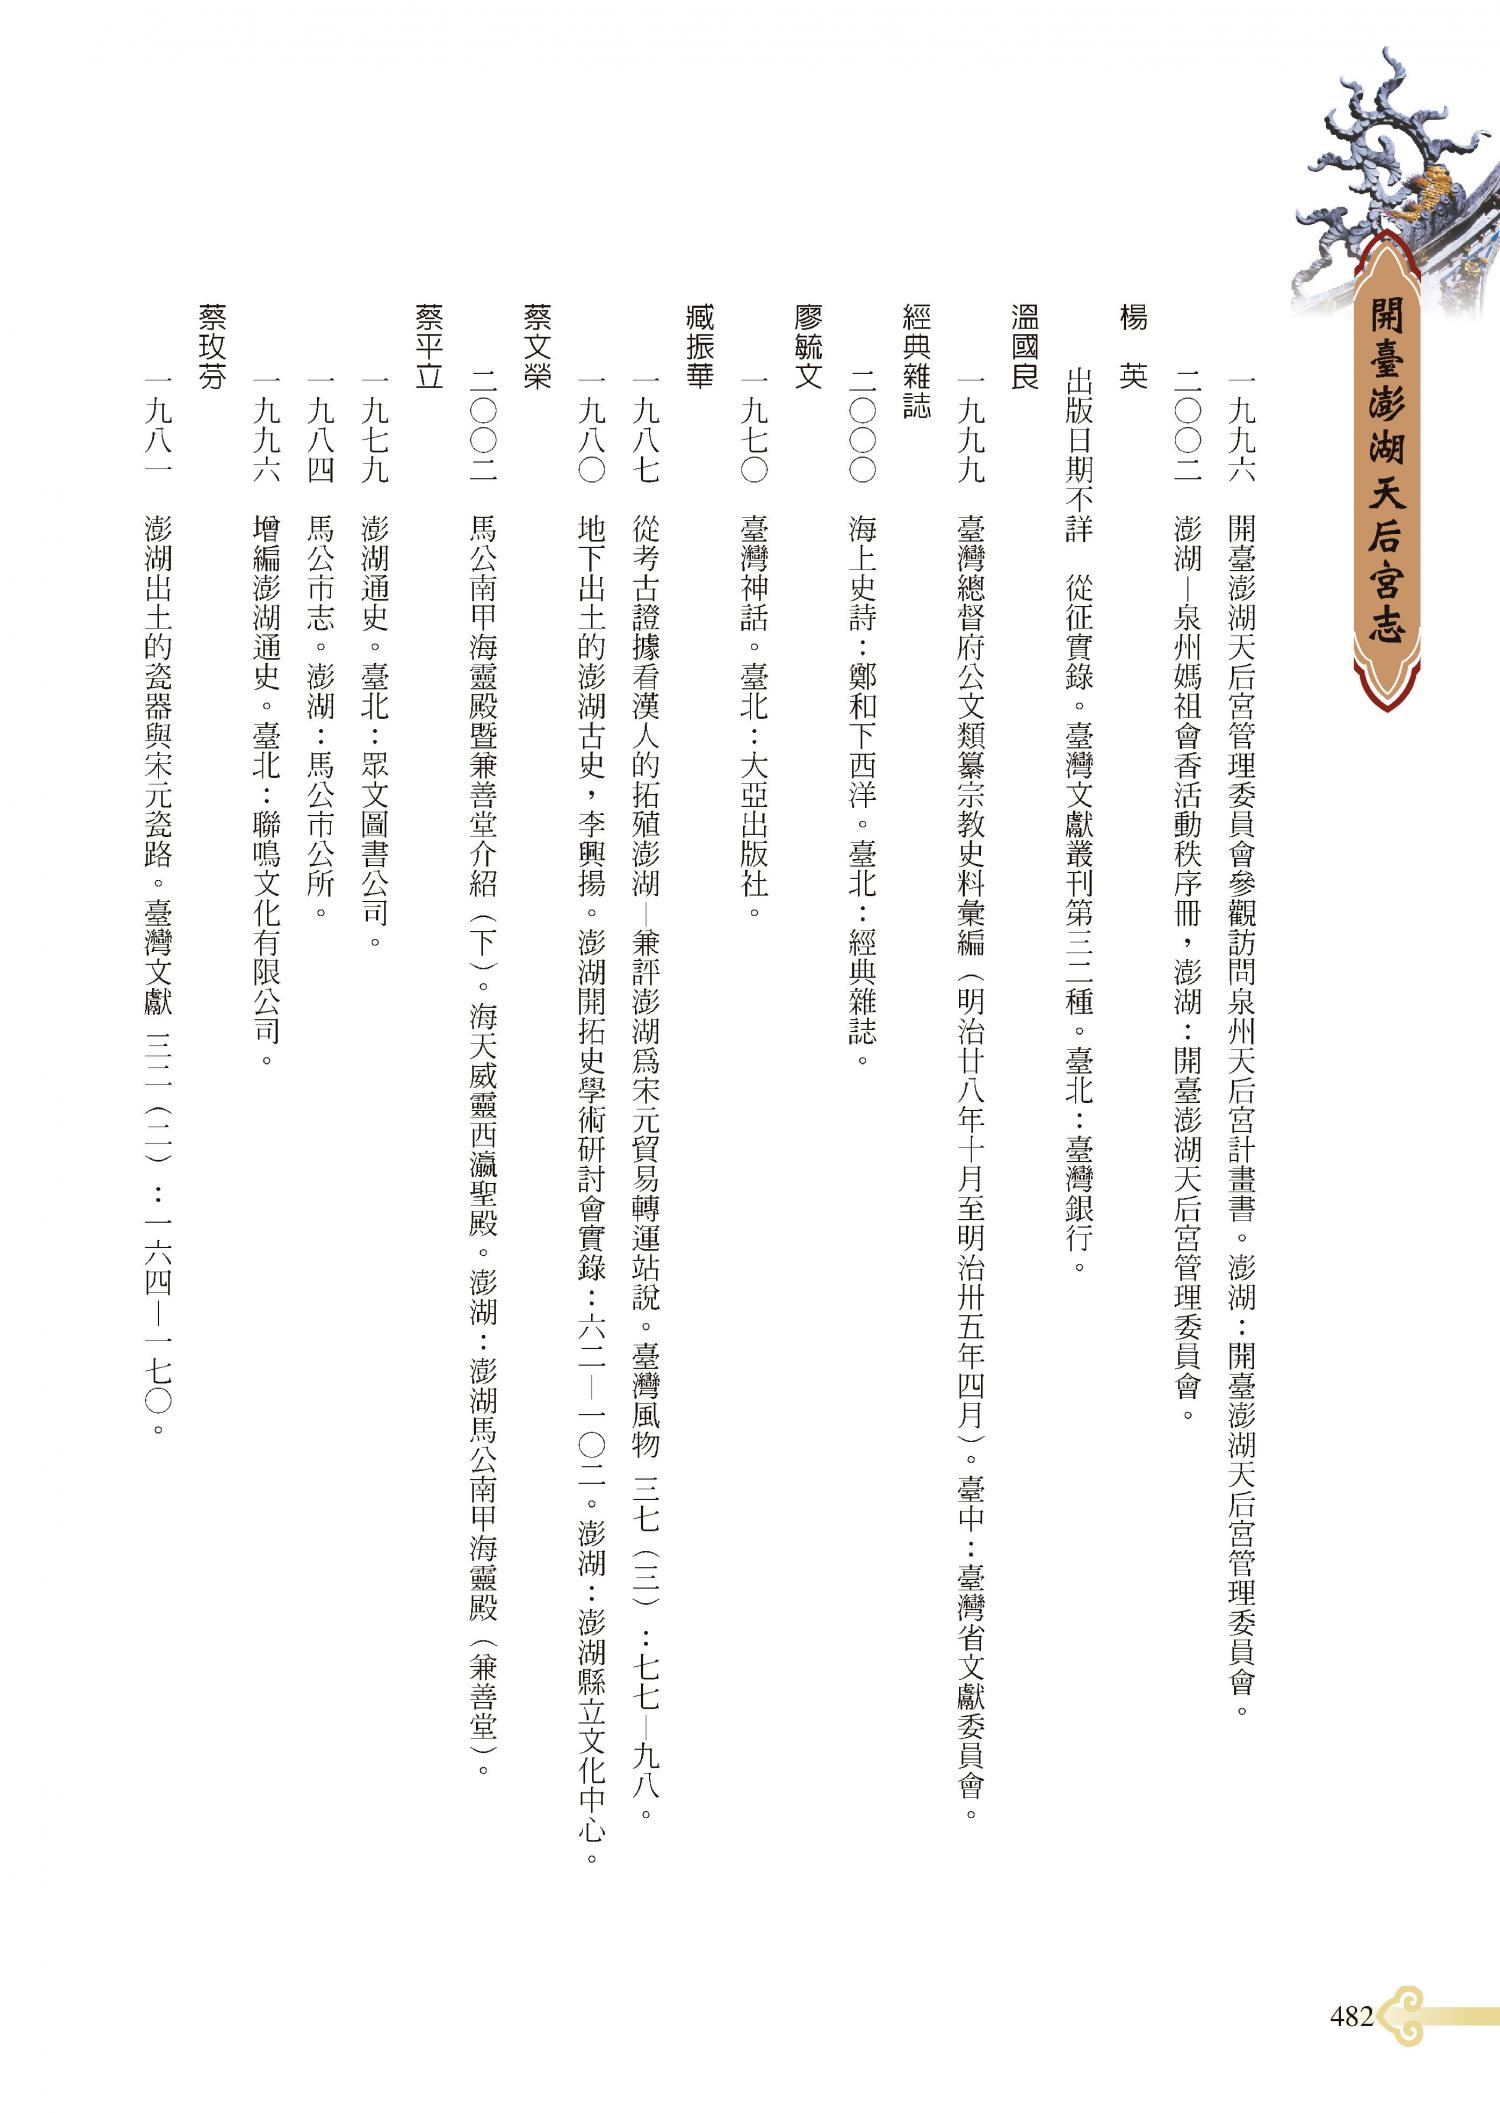 開臺澎湖天后宮志
一九九六　開臺澎湖天后宮管理委員會參觀訪問泉州天后宮計畫書。澎湖：開臺澎湖天后宮管理委員會。
二〇〇二　澎湖—泉州媽祖會香活動秩序冊，澎湖：開臺澎湖天后宮管理委員會。
楊　英
出版日期不詳　從征實錄。臺灣文獻叢刊第三二種。臺北：臺灣銀行。
溫國良
一九九九　臺灣總督府公文類纂宗教史料彙編（明治廿八年十月至明治卅五年四月）。臺中：臺灣省文獻委員會。
經典雜誌
二〇〇〇　海上史詩：鄭和下西洋。臺北：經典雜誌。
廖毓文
一九七〇　臺灣神話。臺北：大亞出版社。
臧振華
一九八七　從考古證據看漢人的拓殖澎湖—兼評澎湖爲宋元貿易轉運站說。臺灣風物 三七（三）：七七—九八。
一九八〇　地下出土的澎湖古史，李興揚。澎湖開拓史學術研討會實錄：六二—一〇二。澎湖：澎湖縣立文化中心。
蔡文榮
二〇〇二　馬公南甲海靈殿暨兼善堂介紹（下）。海天威靈西瀛聖殿。澎湖：澎湖馬公南甲海靈殿（兼善堂）。
蔡平立
一九七九　澎湖通史。臺北：眾文圖書公司。
一九八四　馬公市志。澎湖：馬公市公所。
一九九六　增編澎湖通史。臺北：聯鳴文化有限公司。
蔡玫芬
一九八一　澎湖出土的瓷器與宋元瓷路。臺灣文獻 三二（二）：一六四—一七〇。
482